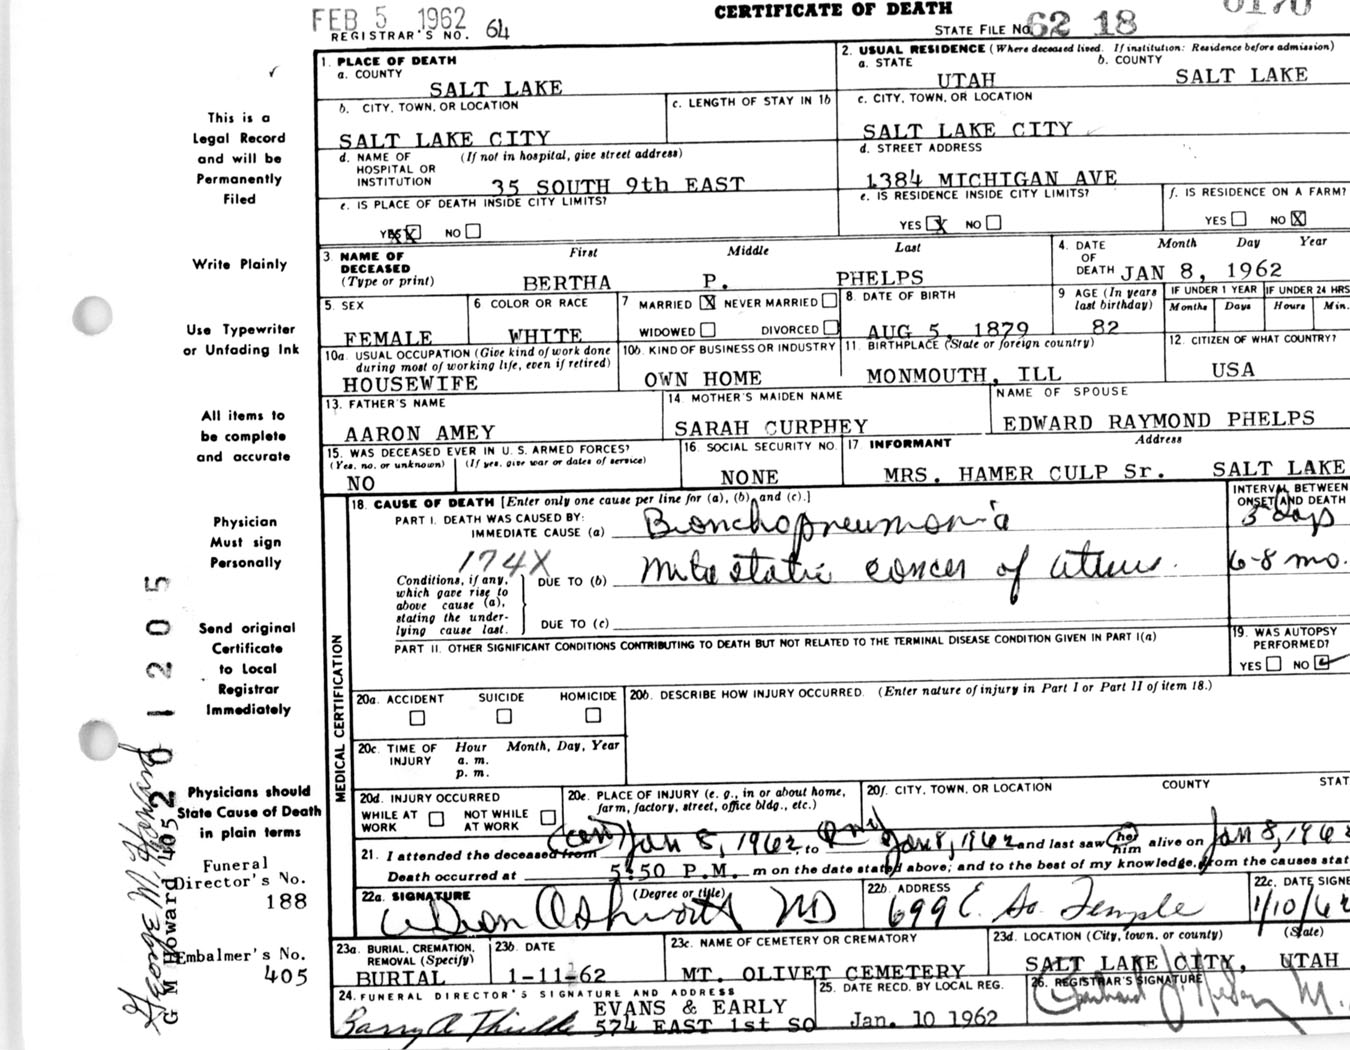 FEB 5 1962
CERTIFICATE OF DEATH
REGISTRAR'S NO. 64
STATE FILE No. 62 18 0170
1. PLACE OF DEATH
a. COUNTY
SALT LAKE
2. USUAL RESIDENCE (Where deceased lived. If institution: Residence before admission)
a. STATE
UTAH
b. COUNTY
SALT LAKE
b. CITY, TOWN, OR LOCATION
SALT LAKE CITY
c. LENGTH OF STAY IN 1b
c. CITY, TOWN, OR LOCATION
SALT LAKE CITY
d. NAME OF HOSPITAL OR INSTITUTION
(If not in hospital, give street address)
35 SOUTH 9th EAST
d. STREET ADDRESS
1384 MICHIGAN AVE
e. IS PLACE OF DEATH INSIDE CITY LIMITS?
YES X NO
e. IS RESIDENCE INSIDE CITY LIMITS?
YES X NO
f. IS RESIDENCE ON A FARM?
YES NO X
3. NAME OF DECEASED
(Type or print)
First Middle Last
BERTHA P. PHELPS
4. DATE OF DEATH
Month Day Year
JAN 8, 1962
5. SEX
FEMALE
6 COLOR OR RACE
WHITE
7 MARRIED X NEVER MARRIED
WIDOWED DIVORCED
8. DATE OF BIRTH
AUG 5, 1879
9 AGE (In years last birthday)
82
IF UNDER 1 YEAR
Months Days
IF UNDER 24 HRS
Hours Min.
10a. USUAL OCCUPATION (Give kind of work done during most of working life, even if retired)
HOUSEWIFE
10b. KIND OF BUSINESS OR INDUSTRY
OWN HOME
11. BIRTHPLACE (State or foreign country)
MONMOUTH, ILL
12. CITIZEN OF WHAT COUNTRY?
USA
13. FATHER'S NAME
AARON AMEY
14. MOTHER'S MAIDEN NAME
SARAH CURPHEY
NAME OF SPOUSE
EDWARD RAYMOND PHELPS
15. WAS DECEASED EVER IN U. S. ARMED FORCES?
(Yes, no, or unknown) (If yes, give war or dates of service)
NO
16. SOCIAL SECURITY NO.
NONE
17. INFORMANT Address
MRS. HAMER CULP Sr. SALT LAKE
18. CAUSE OF DEATH [Enter only one cause per line for (a), (b), and (c).]
INTERVAL BETWEEN ONSET AND DEATH
PART I. DEATH WAS CAUSED BY:
IMMEDIATE CAUSE (a) Bronchopneumonia
3 days
174X
Conditions, if any, which gave rise to above cause (a), stating the underlying cause last.
DUE TO (b) Metastatic cancer of uterus.
6-8 mo.
DUE TO (c)
PART II. OTHER SIGNIFICANT CONDITIONS CONTRIBUTING TO DEATH BUT NOT RELATED TO THE TERMINAL DISEASE CONDITION GIVEN IN PART I(a)
19. WAS AUTOPSY PERFORMED?
YES NO
MEDICAL CERTIFICATION
20a. ACCIDENT SUICIDE HOMICIDE
20b. DESCRIBE HOW INJURY OCCURRED. (Enter nature of injury in Part I or Part II of item 18.)
20c. TIME OF INJURY
Hour Month, Day, Year
a. m.
p. m.
20d. INJURY OCCURRED
WHILE AT WORK NOT WHILE AT WORK
20e. PLACE OF INJURY (e. g., in or about home, farm, factory, street, office bldg., etc.)
20f. CITY, TOWN, OR LOCATION COUNTY STAT
21. I attended the deceased from Jan 8, 1962, to Jan 8, 1962 and last saw her him alive on Jan 8, 1962
Death occurred at 5:50 P.M. m on the date stated above; and to the best of my knowledge, from the causes stat
22a. SIGNATURE (Degree or title)
Ashworth MD
22b. ADDRESS
699 E. So. Temple
22c. DATE SIGNE
1/10/62
23a. BURIAL, CREMATION, REMOVAL (Specify)
BURIAL
23b. DATE
1-11-62
23c. NAME OF CEMETERY OR CREMATORY
MT. OLIVET CEMETERY
23d. LOCATION (City, town, or county) (State)
SALT LAKE CITY, UTAH
24. FUNERAL DIRECTOR'S SIGNATURE AND ADDRESS
EVANS & EARLY
574 EAST 1st SO
25. DATE RECD. BY LOCAL REG.
Jan. 10 1962
26. REGISTRAR'S SIGNATURE
This is a
Legal Record
and will be
Permanently
Filed
Write Plainly
Use Typewriter
or Unfading Ink
All items to
be complete
and accurate
Physician
Must sign
Personally
Send original
Certificate
to Local
Registrar
Immediately
Physicians should
State Cause of Death
in plain terms
Funeral
Director's No.
188
Embalmer's No.
405
George M. Howard
G M Howard 405
2 0 1 2 0 5